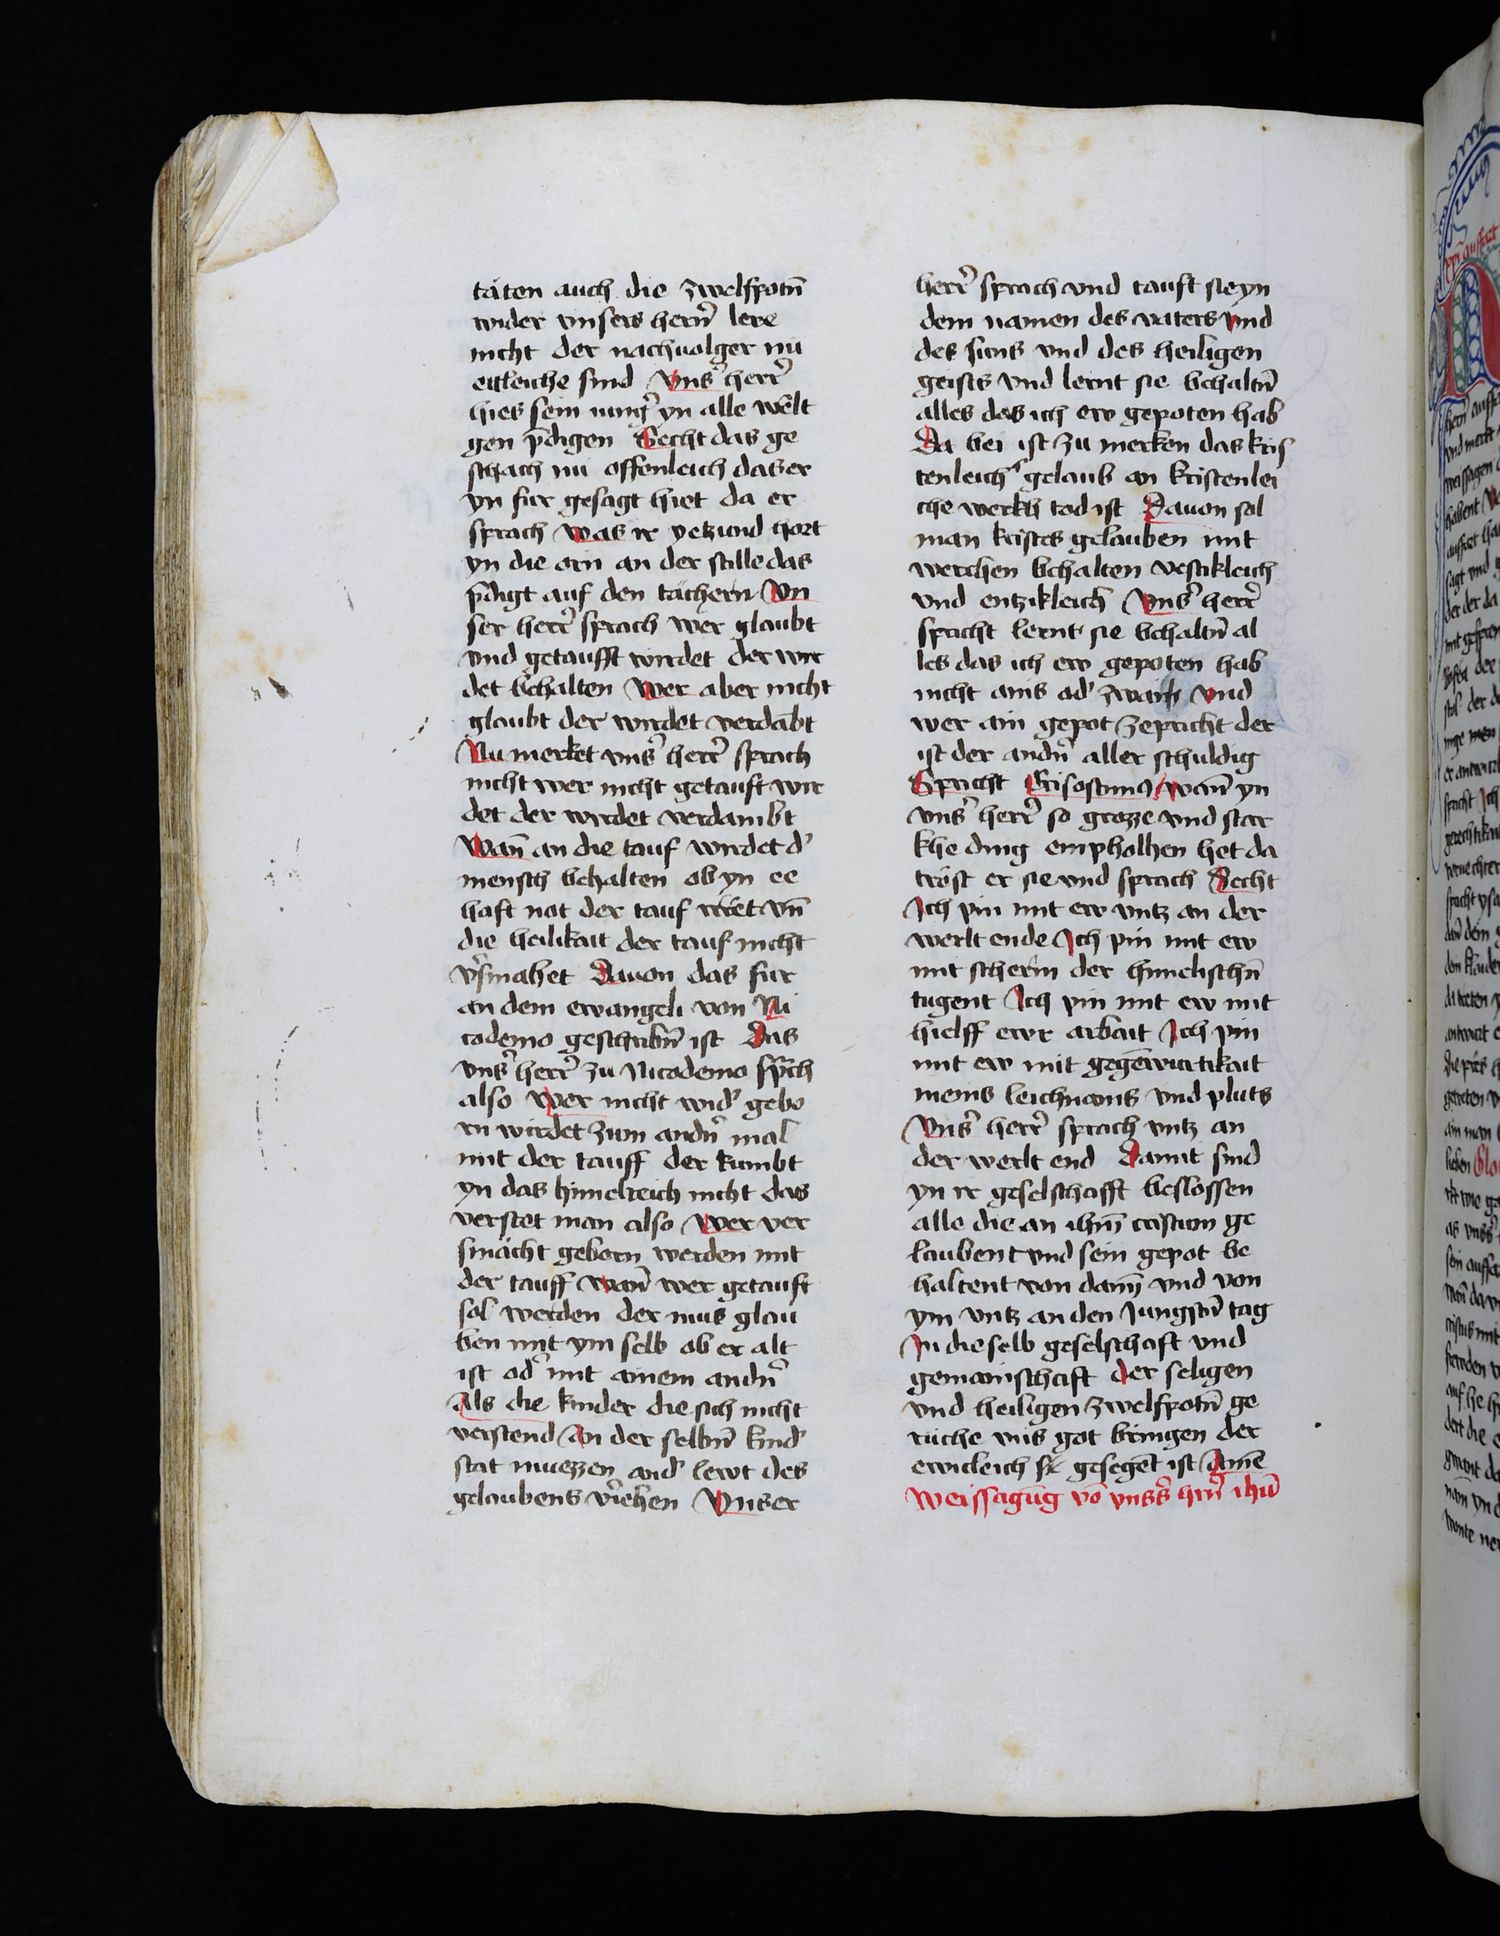 täten auch die zwelfpotn̄
wider vnsers hern̄ lere
nicht der nachuolger nu
ettleiche sind Vns̉ herr̉
hies sein iung̉ yn alle welt
gen p̄digen Secht das ge
schach nu offenleich das er
yn fur gesagt hiet da er
sprach was ir yetzund hort
yn die orn an der stille das
p̄digt auf den tächern Vn
ser herr̉ sprach wer glaubt
vnd getaufft wirdet der wir
det b̉halten Wer aber nicht
glaubt der wirdet verdābt
Nu merket vns̉ herr̉ sprach
nicht wer nicht getauft wir
det der wirdet verdambt
Wan̄ an die tauf wirdet d̉
mensch behalten ob yn ee
haft not der tauf wert vn̄
die heilikait der tauf nicht
v̉smahet Dauon das fur
an dem ewangeli von Ni
codemo geschribn̄ ist Das
vns̉ herr̉ zu Nicodemo sprach
also Wer nicht wid̉ gebo
rn wirdet zum andn̉ mal
mit der tauff der kumbt
yn das himelreich nicht das
verstet man also Wer ver
smächt geborn werden mit
der tauff wan̄ wer getauft
sol werden der mus glau
ben mit ym selb ob er alt
ist od̉ mit ainem andn̉
Als die kinder die sich nicht
verstend An der selbn̄ kind̉
stat muezzen and̉ lewt des
gelaubens v̉iehen Vnser
herr̉ sprach vnd tauft sie yn
dem namen des vaters vnd
des suns vnd des heiligen
geists vnd lernt sie behaltn̄
alles das ich ew gepoten hab
Da bei ist zu merken das kris
tenleich̉ gelaub an kristenlei
che werkh tod ist Dauon sol
man kristes gelauben mit
werchen behalten vestikleich
vnd entzikleich Vns̉ herr̉
spricht lernt sie behaltn̄ al
les das ich ew gepoten hab
nicht ains od̉ zwaih vnd
wer ain gepot zepricht der
ist der andn̉ aller schuldig
Spricht Crisostimus wan̄ yn
vns̉ herr̉ so grozze vnd star
khe ding empholhen het da
tröst er sie vnd sprach Secht
Ich pin mit ew vntz an der
werlt ende Ich pin mit ew
mit scherm der himelischn̄
tugent Ich pin mit ew mit
hielff ewr arbait Ich pin
mit ew mit gegēwurtikait
meins leichnams vnd pluts
Vns̉ herr̉ sprach vntz an
der werlt end Damit sind
yn ir geselschafft beslossen
alle die an ihm̄ cristum ge
laubent vnd sein gepot be
haltent von dann̄ vnd von
ym vntz an den Jungstn̄ tag
In die selb geselschaft vnd
gemainschaft der seligen
vnd heiligen zwelfpotn̄ ge
ruche vns got bringen der
ewicleich sei gesegēt ist Amē
Weissagūg vō vnss̉ hrn̄ ihū